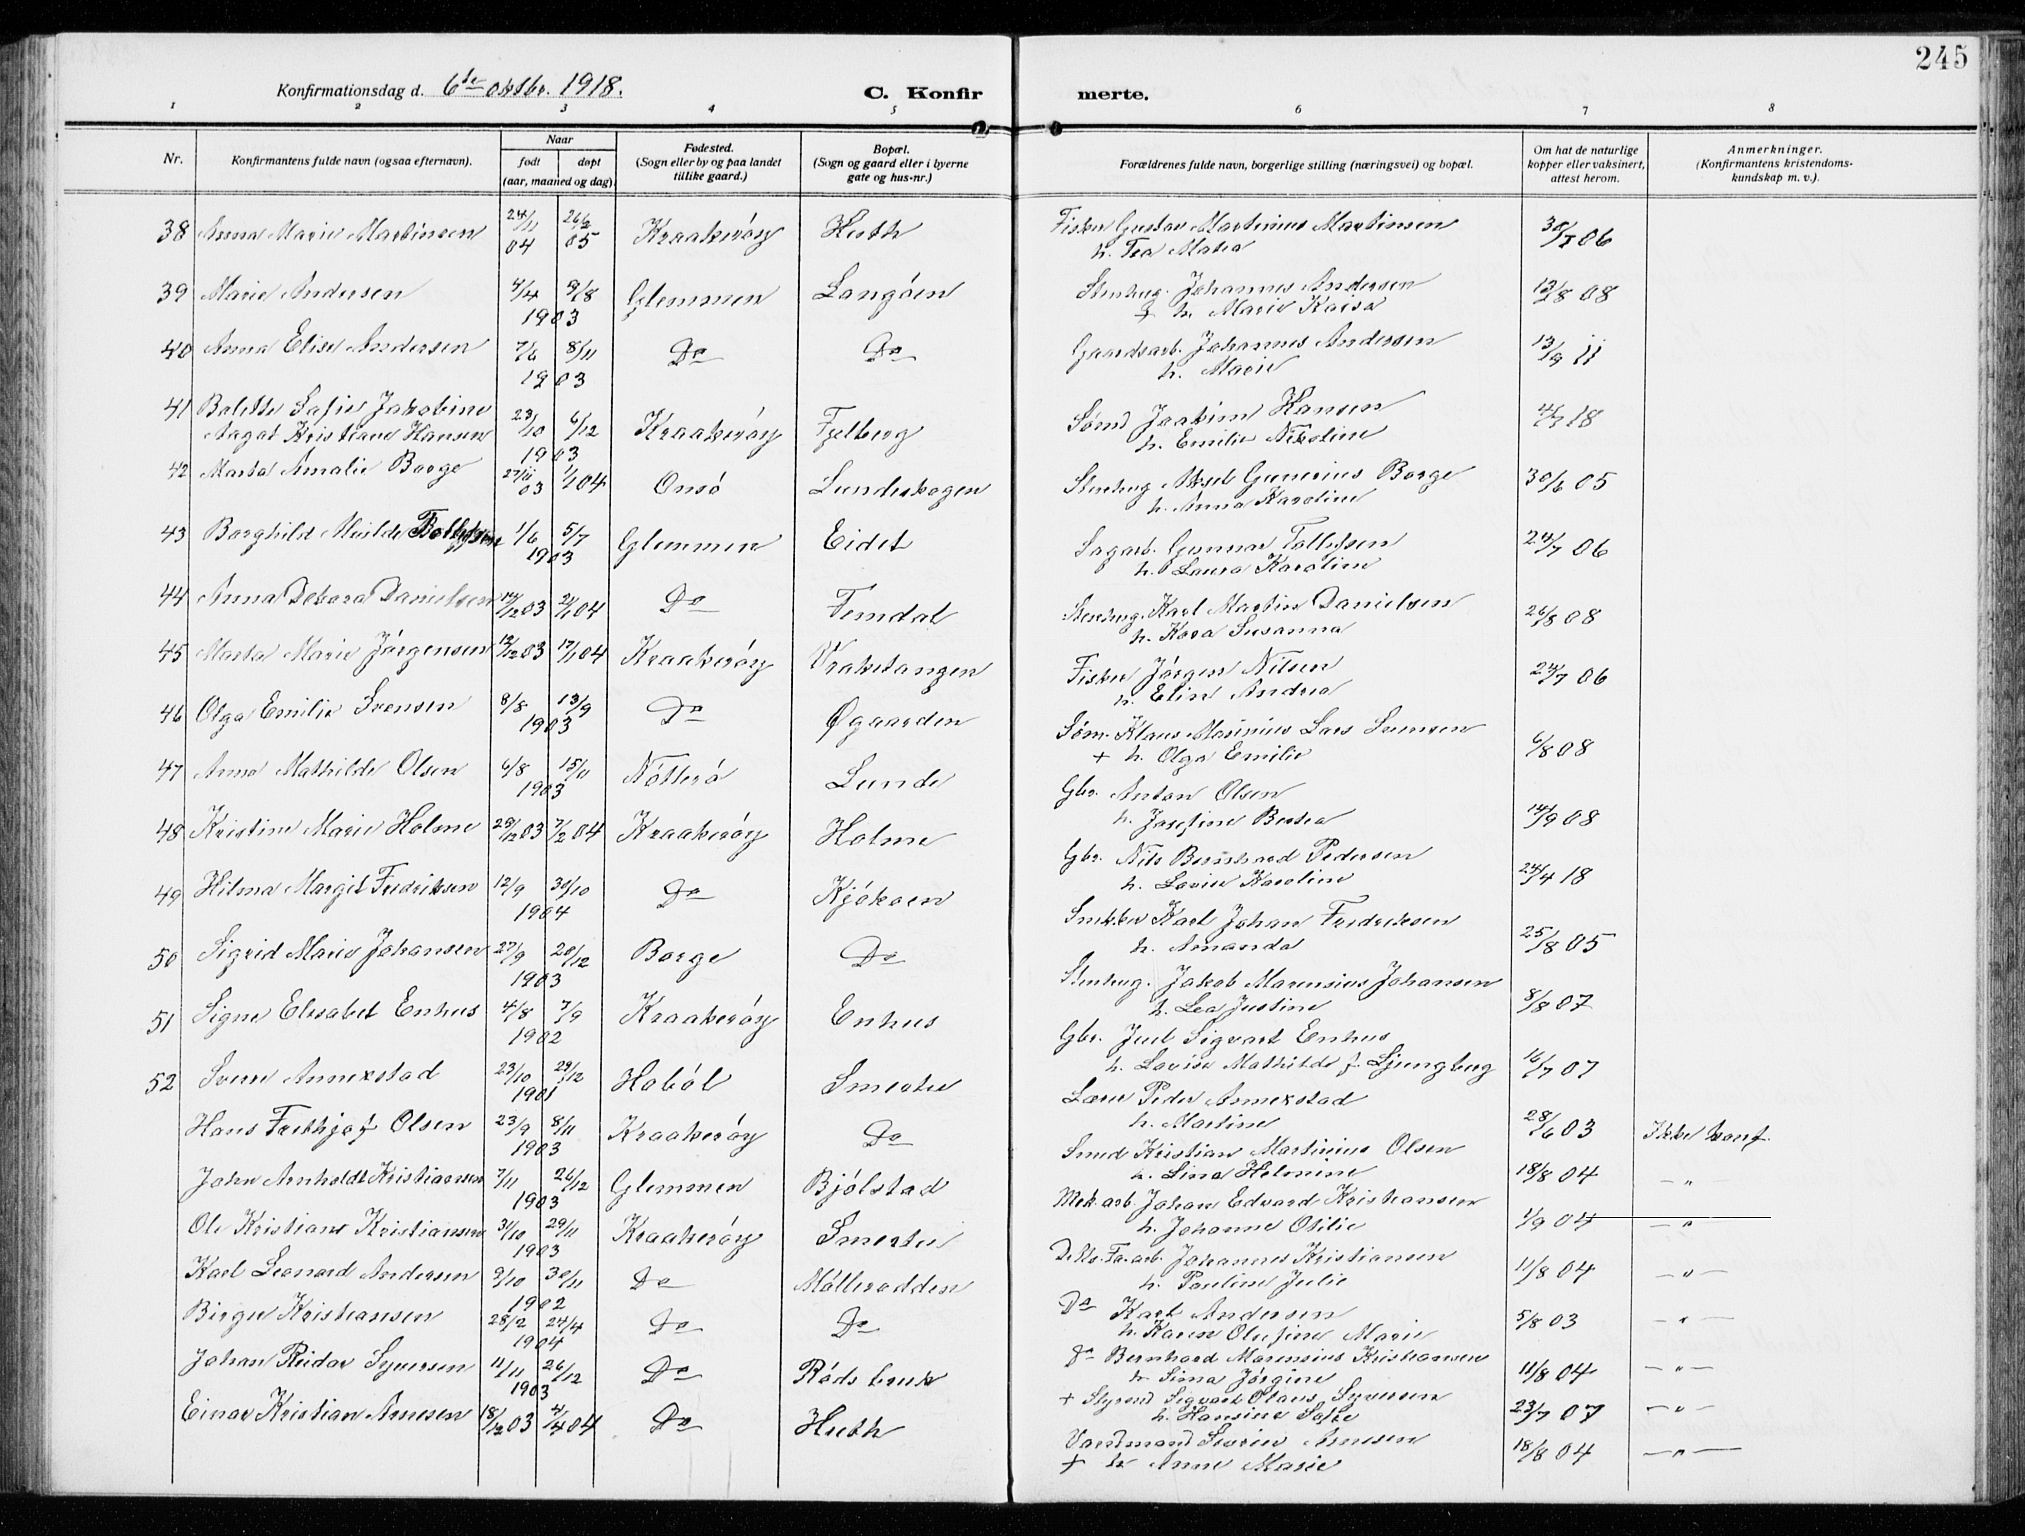 245
Konfirmationsdag d. 6te oktbr. 1918.
C. Konfirmerte.
1 2 3 4 5 6 7 8
Nr.
Konfirmantens fulde navn (ogsaa efternavn).
Naar
født døpt
(aar, maaned og dag)
Fødested.
(Sogn eller by og paa landet
tillike gaard.)
Bopæl.
(Sogn og gaard eller i byerne
gate og hus-nr.)
Forældrenes fulde navn, borgerlige stilling (næringsvei) og bopæl.
Om hat de naturlige
kopper eller vaksinert,
attest herom.
Anmerkninger.
(Konfirmantens kristendoms-
kundskap m. v.).
38 Anna Marie Martinsen 24/11 04 26/2 05 Kraakerøy Huth Fisker Gustav Martinius Martinsen 30/7 06
h. Tea Matea
39 Marie Andersen 4/4 9/8 1903 Glemmen Langøen Stenhug. Johannes Andersen 13/8 08
h. Marie Kaisa
40 Anna Elise Andersen 7/6 8/11 1903 Do Do Gaardsarb. Johannes Andersen 13/9 11
h. Marie
41 Bolette Sofie Jakobine
Aagot Kristiane Hansen 23/10 6/12 1903 Kraakerøy Fjelberg Sømd Joakim Hansen 4/7 18
h. Emilie Nikoline
42 Marta Amalie Borge 27/11 03 1/1 04 Onsø Lundeskogen Stenhug Aksel Gunerius Borge 30/6 05
h. Anna Karoline
43 Borghild Alvilde Tollefsen 1/6 5/7 1903 Glemmen Eidet Sagarb. Gunnar Tollefsen 24/7 06
h. Laura Karoline
44 Anna Debora Danielsen 14/12 03 24/1 04 Do Femdal Stenhug. Karl Martin Danielsen 26/8 08
h. Kora Susanna
45 Marta Marie Jørgensen 12/12 03 17/1 04 Kraakerøy Vraketangen Fisker Jørgen Nilsen 24/7 06
h. Elin Andrea
46 Olga Emilie Svensen 8/8 13/9 1903 Do Øgaarden Søm. Klaus Marinius Lars Svensen 6/8 08
+ h. Olga Emilie
47 Anna Mathilde Olsen 6/8 15/11 1903 Nøtterø Lunde Gbr. Anton Olsen 14/9 08
h. Josefine Bertea
48 Kristine Marie Holme 29/12 03 7/2 04 Kraakerøy Holme Gbr. Nils Bernhard Pedersen 24/4 18
h. Lovise Karoline
49 Hilma Margit Fredriksen 12/9 30/10 1904 Do Kjøkøen Snekker Karl Johan Fredriksen 25/8 05
h. Amanda
50 Sigrid Marie Johansen 27/9 20/12 1903 Borge Do Stenhug. Jakob Marensius Johansen 8/8 07
h. Lea Justine
51 Signe Elisabet Enhus 4/8 7/9 1902 Kraakerøy Enhus Gbr. Juel Sigvart Enhus
h. Lovise Mathilde f. Ljungberg 16/7 07
52 Sverre Annekstad 23/10 29/12 1901 Hobøl Smertu Lærer Peder Annekstad
h. Martine 28/6 03 Ikke konf.
Hans Fritthjof Olsen 23/9 8/11 1903 Kraakerøy Do Smed Kristian Martinius Olsen
h. Lina Helmine 18/8 04 — " —
John Arnholdt Kristiansen 7/11 26/12 1903 Glemmen Bjølstad Mek. arb. Johan Edvard Kristiansen
h. Johanne Otilie 1/9 04 — " —
Ole Kristian Kristiansen 31/10 29/11 1903 Kraakerøy Smertu Johannes Kristiansen
h. Pauline Julie 11/8 04 — " —
Karl Leonard Andersen 9/10 30/11 1902 Do Mølleradden Do Karl Andersen
h. Karen Olufine Marie 5/8 03 — " —
Birger Kristiansen 28/2 24/4 1904 Do Do Do Bernhard Marensius Kristiansen
h. Lina Jørgine 11/8 04 — " —
Johan Reidar Syversen 11/11 26/12 1903 Do Røds bruk + Styrmd Sigvart Olaus Syversen
h. Hansine Sofie 23/7 07 — " —
Einar Kristian Arnesen 18/12 03 4/4 04 Do Huth Arnesen
+ h. Anne Marie 18/8 04 — " —